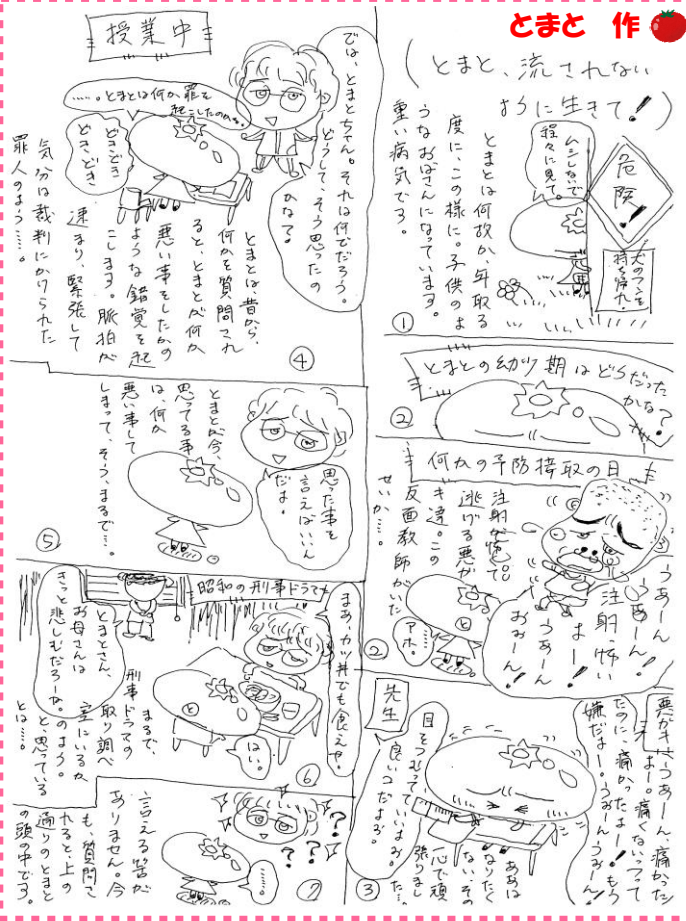 とまと 作
(とまと、流されない
ように生きて!)
危険!
犬のフンを
持ち帰れ!
ムシしないで
程々に見て。
とまとは何故か、年取る
度に、この様に。子供のよ
うなおばさんになっています。
重い病気でろ。
①
とまとの幼少期はどうだった
かな?
②
何かの予防接取の日
うあーん
うあーん!
注射怖い
よー!
うあーん
おおーん!
注射が怖くて。
逃げる悪が
キ達。この
反面教師がいた
せいか…。
……
アホ。
②
悪がキ
うあーん、痛かった
よー。痛くないって言っ
たのに、痛かったよー!もう
嫌だよー。うあーんうあーん!
先生
目をつむってていいよ。
良いコだよお。
ああは
なりたく
ない、その
一心で頑
張りまし
た…。
③
授業中
では、とまとちゃん。それは何でだろう。
どうして、そう思ったの
かな?
……。とまとは何か、罪を
起こしたのかな。
どきどき
どきどき
とまとは、昔から、
何かを質問され
ると、とまとが何か
悪い事をしたかの
ような錯覚を起
こします。脈拍が
速まり、緊張して
気分は裁判にかけられた
罪人のよう……。
④
思った事を
言えばいいん
だよ。
とまとが今、
思ってる事
は、何か
悪い事して
しまって、そう、まるで…。
⑤
昭和の刑事ドラマ
まあ、カツ丼でも食えや。
はい。
とまとさん、
お母さんは
きっと悲しむだろーな。
まるで、
刑事ドラマの
取り調べ
室にいるか
のよう。
と、思っている
とは……。
⑥
???
……。
言える筈が
ありません。今
も、質問さ
れると、上の
通りのとまと
の頭の中です。
⑦